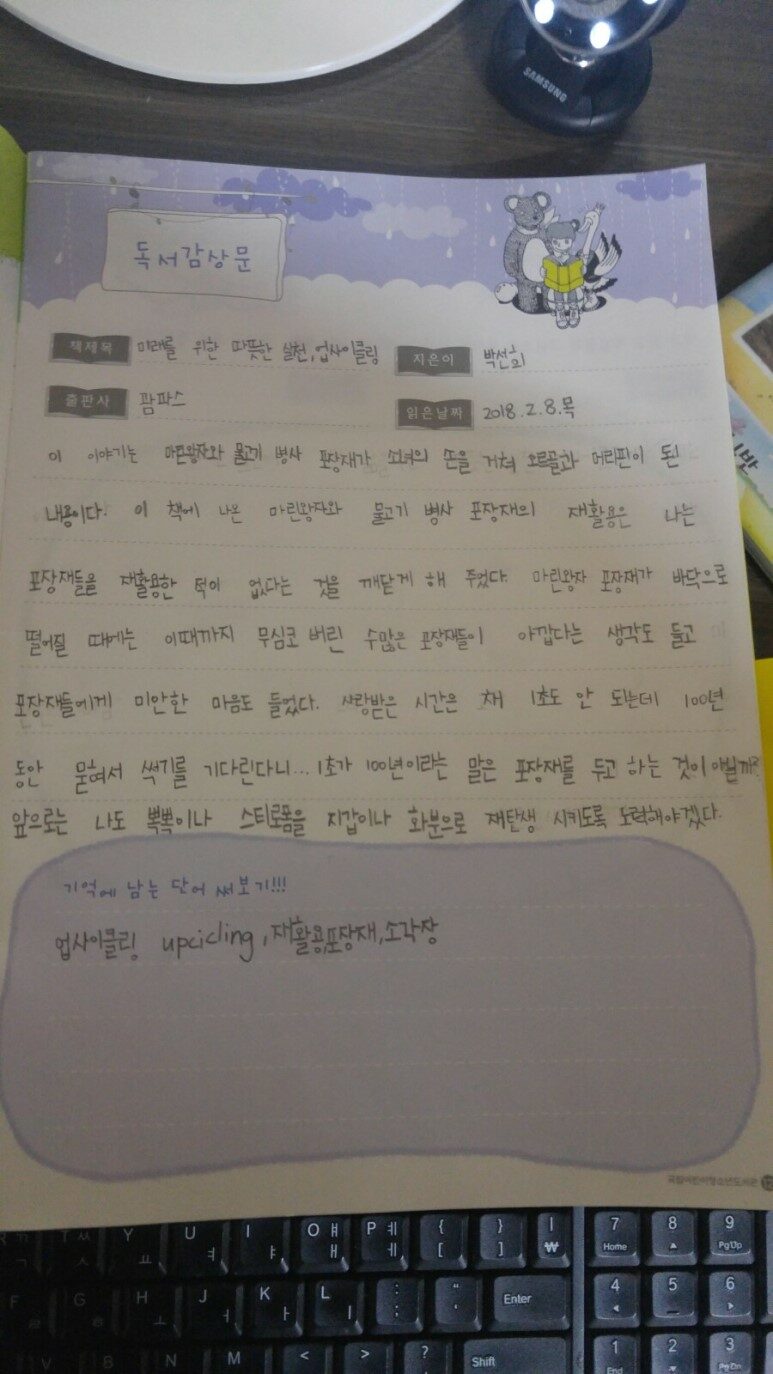 SAMSUNG
독서감상문
책제목 미래를 위한 따뜻한 실천, 업사이클링 지은이 박선희
출판사 팜파스 읽은날짜 2018.2.8.목
이 이야기는 마린왕자와 물고기 병사 포장재가 소녀의 손을 거쳐 오르골과 머리핀이 된
내용이다. 이 책에 나온 마린왕자와 물고기 병사 포장재의 재활용은 나는
포장재들을 재활용한 적이 없다는 것을 깨닫게 해 주었다. 마린왕자 포장재가 바닥으로
떨어질 때에는 이때까지 무심코 버린 수많은 포장재들이 아깝다는 생각도 들고
포장재들에게 미안한 마음도 들었다. 사랑받은 시간은 채 1초도 안 되는데 100년
동안 묻혀서 썩기를 기다린다니... 1초가 100년이라는 말은 포장재를 두고 하는 것이 아닐까?
앞으로는 나도 뽁뽁이나 스티로폼을 지갑이나 화분으로 재탄생 시키도록 노력해야겠다.
기억에 남는 단어 써보기!!!
업사이클링 upcicling, 재활용포장재, 소각장
국립어린이청소년도서관
Y ㅛ U ㅕ I ㅑ O ㅐ ㅒ P ㅔ ㅖ { [ } ] | ₩ 7 Home 8 9 PgUp
F G H ㅗ J ㅓ K ㅏ L ㅣ : ; " ' Enter 4 5 6
V B N M < > ? Shift 1 End 2 3 PgDn